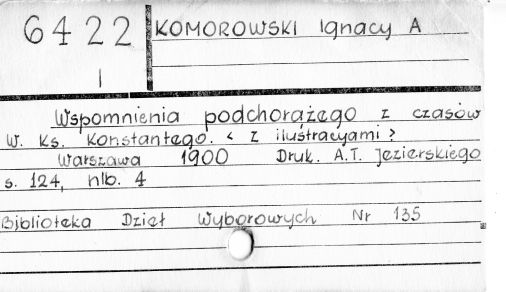 6422
I
KOMOROWSKI Ignacy A
Wspomnienia podchorążego z czasów
W. Ks. Konstantego. < Z ilustracyami >
Warszawa 1900 Druk. A.T. Jezierskiego
s. 124, nlb. 4
Biblioteka Dzieł Wyborowych Nr 135